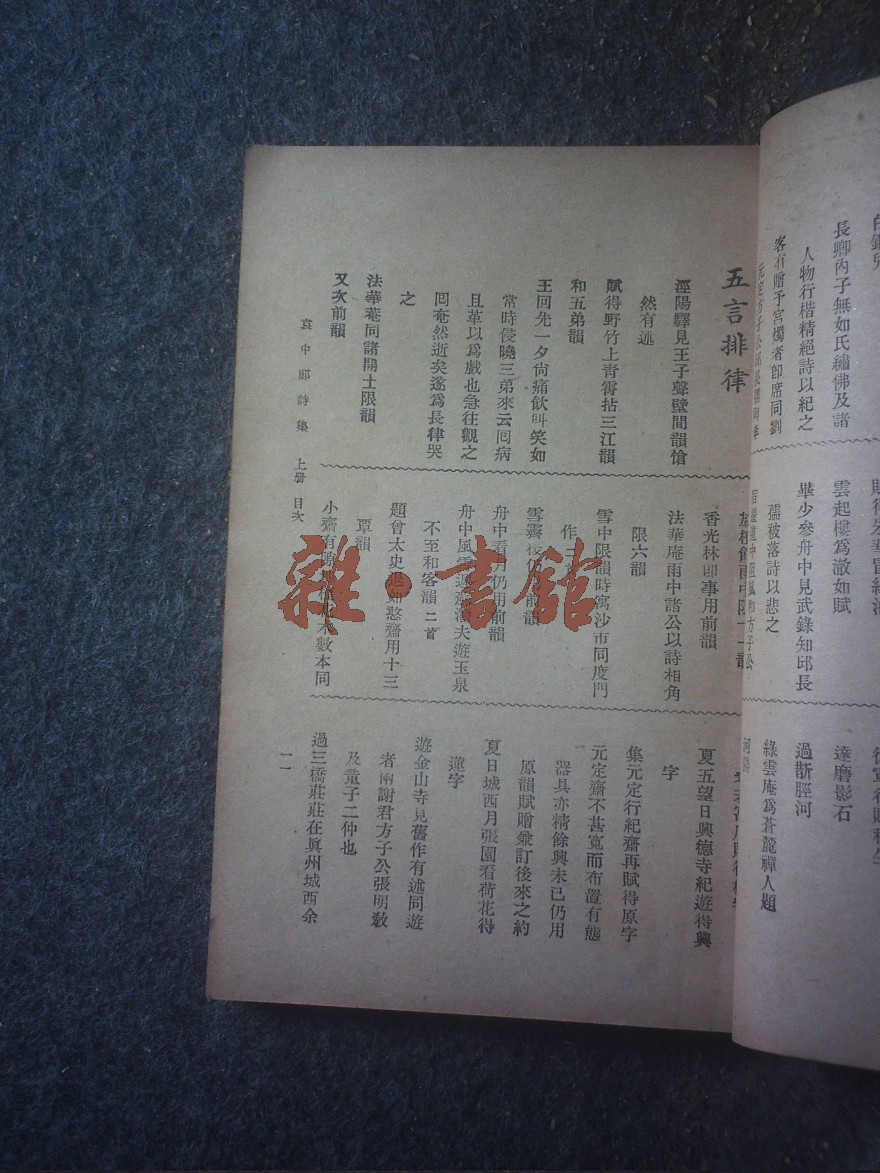 長卿內子無如氏繡佛及諸
人物行楷精絕詩以紀之
客有贈予宮燭者卽席同劉
雲起樓爲澂如賦
畢少參舟中見武錄知邱長
孺被落詩以悲之
達磨影石
過斮脛河
綠雲庵爲蒼麓禪人題
五言排律
溼陽驛見王子聲壁間韻愴
然有述
賦得野竹上青霄拈三江韻
和五弟韻
王回先一夕尙痛飮叫笑如
常時侵曉三弟來云回病
且革以爲戲也急往觀之
回奄然逝矣遂爲長律哭
之
法華菴同諸開士限韻
又次前韻
香光林卽事用前韻
法華庵雨中諸公以詩相角
限六韻
雪中限韻時寓沙市同度門
作二首
雪霽後仍用前韻
舟中看月仍用前韻
舟中風雪
夫遊玉泉
不至和客韻 二首
題曾太史退如憨齋用十三
覃韻
小齋有
數本同
夏五望日興德寺紀遊得興
字
集元定行紀齋再賦得原字
元定齋不甚寬而布置有態
器具亦精餘興未已仍用
原韻賦贈兼訂後來之約
夏日城西月張園看荷花得
蓮字
遊金山寺見舊作有述同遊
者兩謝君方子公張明敎
及童子二仲也
過三橋莊莊在眞州城西余
袁中郎詩集 上册 目次
一一
雜·書館